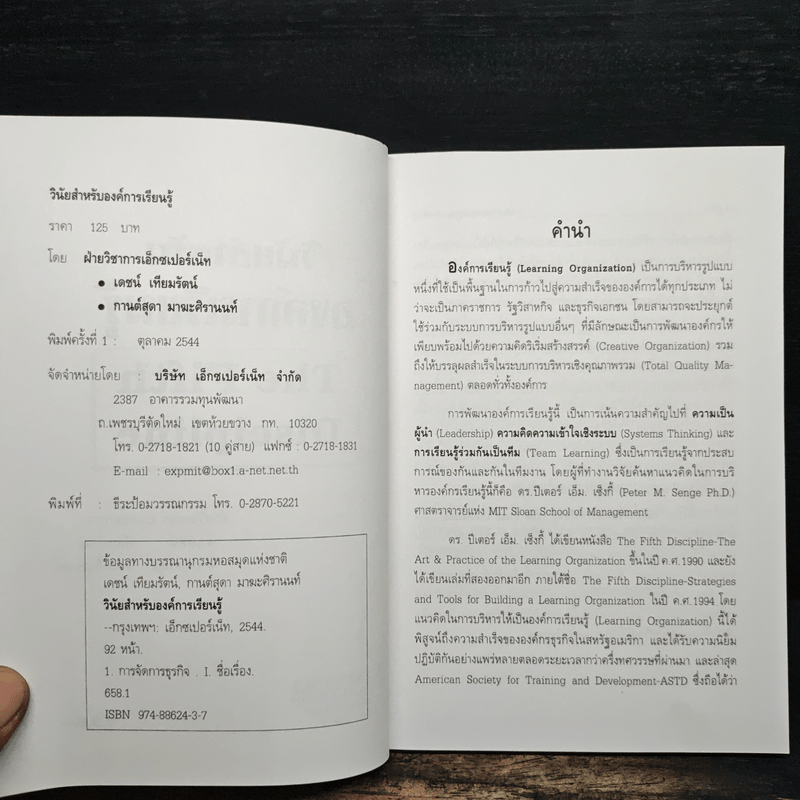 วินัยสำหรับองค์การเรียนรู้
ราคา 125 บาท
โดย ฝ่ายวิชาการเอ็กซเปอร์เน็ท
● เดชน์ เทียมรัตน์
● กานต์สุดา มาฆะศิรานนท์
พิมพ์ครั้งที่ 1 : ตุลาคม 2544
จัดจำหน่ายโดย : บริษัท เอ็กซเปอร์เน็ท จำกัด
2387 อาคารรวมทุนพัฒนา
ถ.เพชรบุรีตัดใหม่ เขตห้วยขวาง กท. 10320
โทร. 0-2718-1821 (10 คู่สาย) แฟกซ์ : 0-2718-1831
E-mail : expmit@box1.a-net.net.th
พิมพ์ที่ : ธีระป้อมวรรณกรรม โทร. 0-2870-5221
ข้อมูลทางบรรณานุกรมหอสมุดแห่งชาติ
เดชน์ เทียมรัตน์, กานต์สุดา มาฆะศิรานนท์
วินัยสำหรับองค์การเรียนรู้
--กรุงเทพฯ: เอ็กซเปอร์เน็ท, 2544.
92 หน้า.
1. การจัดการธุรกิจ . I. ชื่อเรื่อง.
658.1
ISBN 974-88624-3-7
คำนำ
องค์การเรียนรู้ (Learning Organization) เป็นการบริหารรูปแบบ
หนึ่งที่ใช้เป็นพื้นฐานในการก้าวไปสู่ความสำเร็จขององค์การได้ทุกประเภท ไม่
ว่าจะเป็นภาคราชการ รัฐวิสาหกิจ และธุรกิจเอกชน โดยสามารถจะประยุกต์
ใช้ร่วมกับระบบการบริหารรูปแบบอื่นๆ ที่มีลักษณะเป็นการพัฒนาองค์กรให้
เพียบพร้อมไปด้วยความคิดริเริ่มสร้างสรรค์ (Creative Organization) รวม
ถึงให้บรรลุผลสำเร็จในระบบการบริหารเชิงคุณภาพรวม (Total Quality Ma-
nagement) ตลอดทั่วทั้งองค์การ
การพัฒนาองค์การเรียนรู้นี้ เป็นการเน้นความสำคัญไปที่ ความเป็น
ผู้นำ (Leadership) ความคิดความเข้าใจเชิงระบบ (Systems Thinking) และ
การเรียนรู้ร่วมกันเป็นทีม (Team Learning) ซึ่งเป็นการเรียนรู้จากประสบ
การณ์ของกันและกันในทีมงาน โดยผู้ที่ทำงานวิจัยค้นหาแนวคิดในการบริ
หารองค์การเรียนรู้นี้ก็คือ ดร.ปีเตอร์ เอ็ม. เซ็งกี้ (Peter M. Senge Ph.D.)
ศาสตราจารย์แห่ง MIT Sloan School of Management
ดร. ปีเตอร์ เอ็ม. เซ็งกี้ ได้เขียนหนังสือ The Fifth Discipline-The
Art & Practice of the Learning Organization ขึ้นในปี ค.ศ.1990 และยัง
ได้เขียนเล่มที่สองออกมาอีก ภายใต้ชื่อ The Fifth Discipline-Strategies
and Tools for Building a Learning Organization ในปี ค.ศ.1994 โดย
แนวคิดในการบริหารให้เป็นองค์การเรียนรู้ (Learning Organization) นี้ได้
พิสูจน์ถึงความสำเร็จขององค์กรธุรกิจในสหรัฐอเมริกา และได้รับความนิยม
ปฏิบัติกันอย่างแพร่หลายตลอดระยะเวลากว่าครึ่งทศวรรษที่ผ่านมา และล่าสุด
American Society for Training and Development-ASTD ซึ่งถือได้ว่า